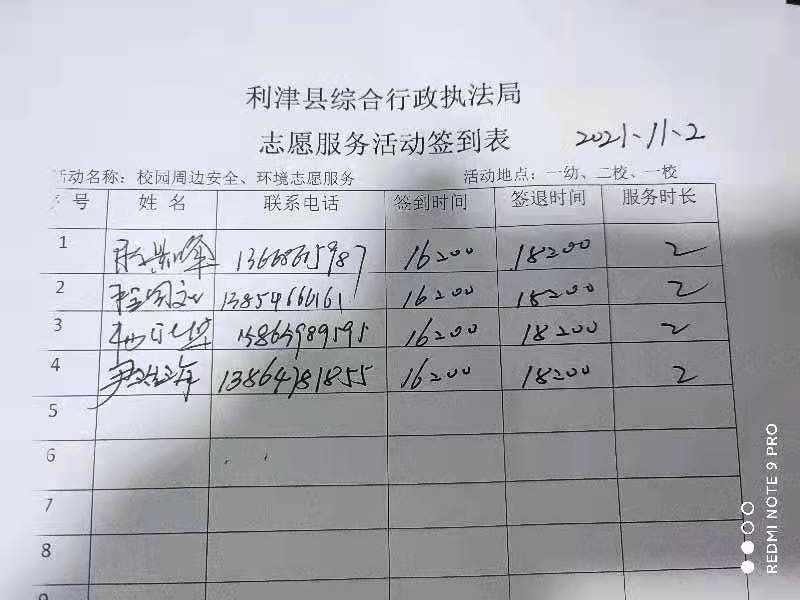 利津县综合行政执法局
志愿服务活动签到表 2021、11、2
活动名称：校园周边安全、环境志愿服务 活动地点：一幼、二校、一校
号 姓 名 联系电话 签到时间 签退时间 服务时长
1 16:00 18:00 2
2 13854666161 16:00 18:00 2
3 16:00 18:00 2
4 13864781855 16:00 18:00 2
5
6
7
8
REDMI NOTE 9 PRO